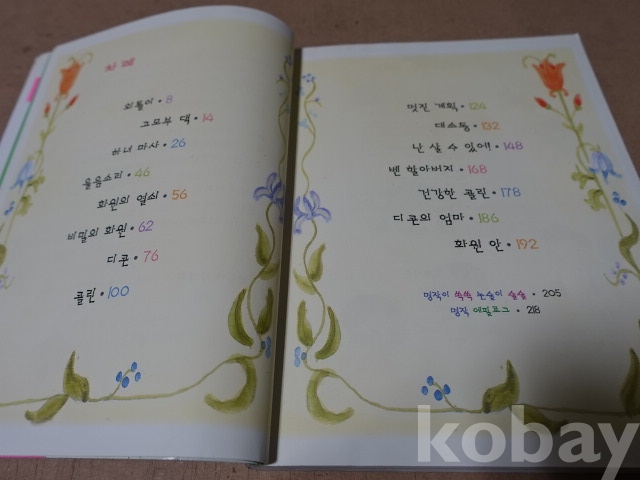 차례
외톨이 • 8
고모부 댁 • 14
하녀 마사 • 26
울음소리 • 46
화원의 열쇠 • 56
비밀의 화원 • 62
디콘 • 76
콜린 • 100
멋진 계획 • 124
대소동 • 132
난 살 수 있어! • 148
벤 할아버지 • 168
건강한 콜린 • 178
디콘의 엄마 • 186
화원 안 • 192
명작이 쏙쏙 논술이 술술 • 205
명작 에필로그 • 218
kobay